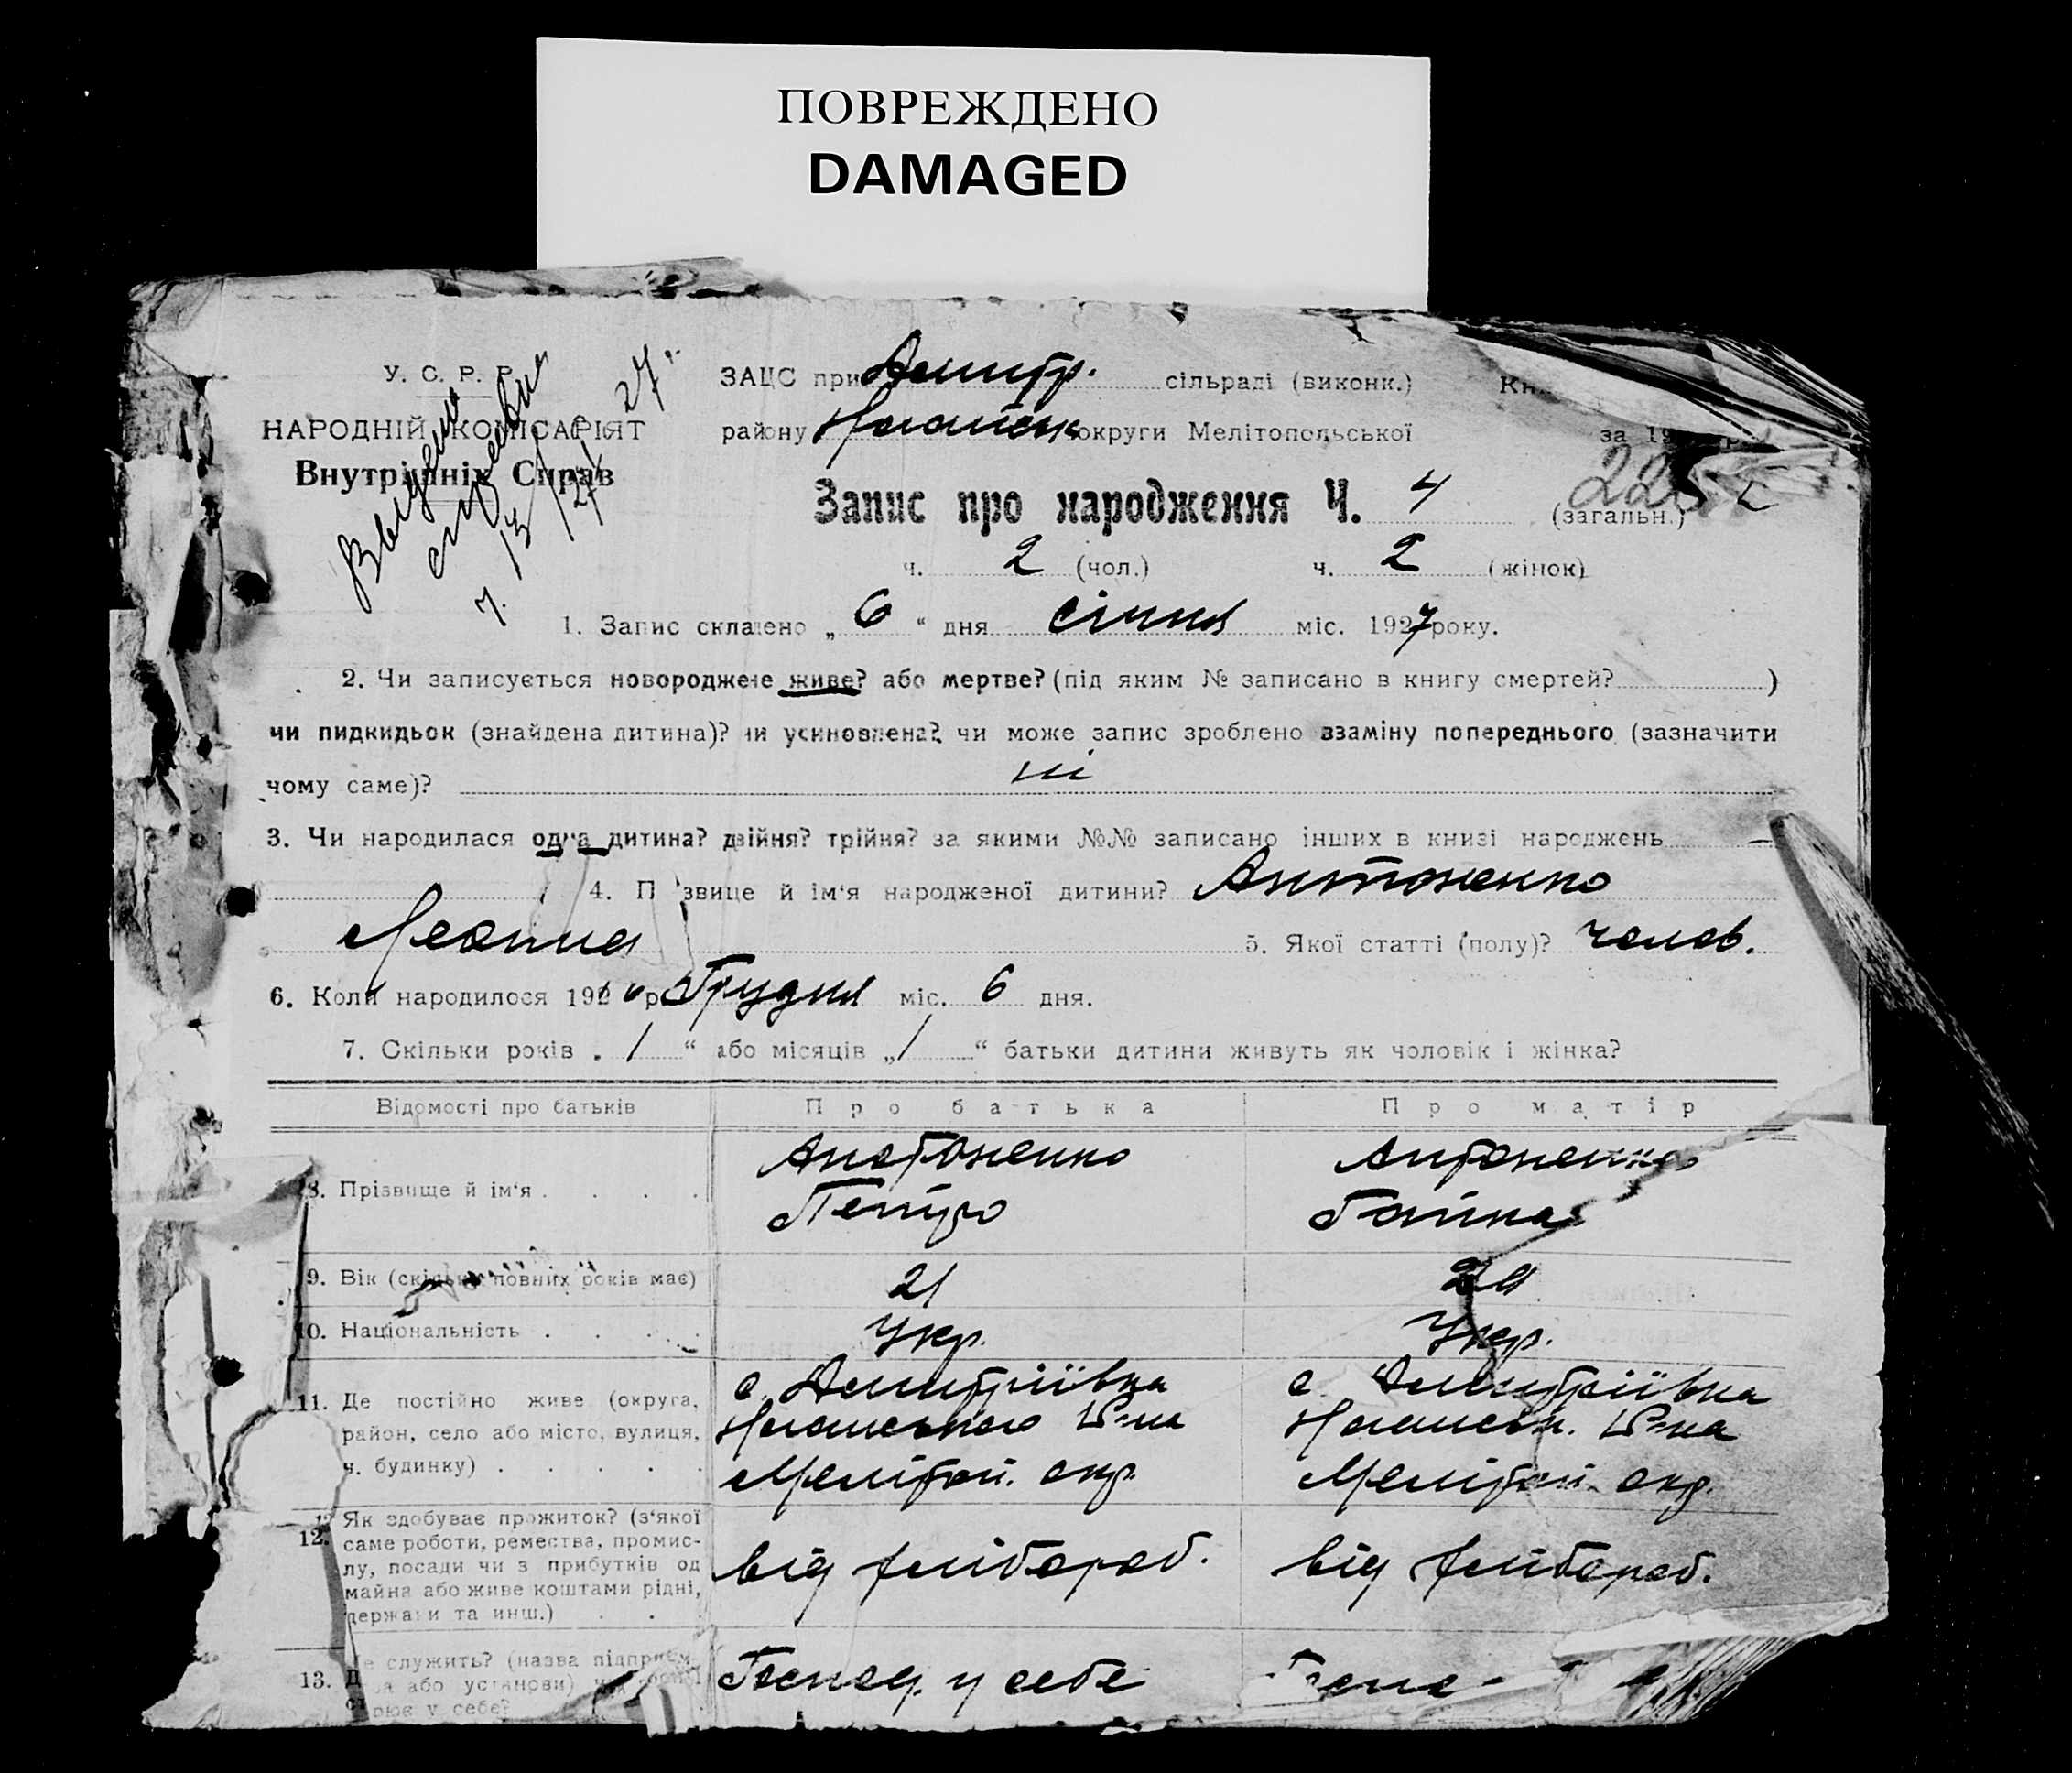 ПОВРЕЖДЕНО
DAMAGED
У. С. Р. Р.
НАРОДНІЙ КОМІСАРІЯТ
Внутрішніх Справ
27
ЗАЦС при Дмитр. сільраді (виконк.) Кн
району Ногайськ округи Мелітопольської
за 19
22
Запис про народження Ч. 4 (загальн.)
ч. 2 (чол.) ч. 2 (жінок)
1. Запис складено „ 6 “ дня січня міс. 1927 року.
2. Чи записується новороджене живе? або мертве? (під яким № записано в книгу смертей? )
чи пидкидьок (знайдена дитина)? чи усиновлена? чи може запис зроблено взаміну попереднього (зазначити
чому саме)? ні
3. Чи народилася одна дитина? двійня? трійня? за якими №№ записано інших в книзі народжень —
4. Прізвище й ім‘я народженої дитини? Антоненко
5. Якої статті (полу)? чолов.
6. Коли народилося 1926 р. Грудня міс. 6 дня.
7. Скільки років „ 1 “ або місяців „ “ батьки дитини живуть як чоловік і жінка?
Відомості про батьків Про батька Про матір
8. Прізвище й ім‘я . . . . Антоненко Антоненко
Петро Ганна
9. Вік (скільки повних років має) 21
10. Національність . . . . Укр. Укр.
11. Де постійно живе (округа, с. Дмитріївка с. Дмитріївка
район, село або місто, вулиця, Ногайського Р-на Ногайськ. Р-на
ч. будинку) . . . . . Мелітоп. окр. Мелітоп. окр.
12. Як здобуває прожиток? (з‘якої
саме роботи, ремества, промис-
лу, посади чи з прибутків од від хлібороб. від хлібороб.
майна або живе коштами рідні,
держави та инш.) . . .
13. Де служить? (назва підприєм- Господ. у себе
або установи)
у себе?